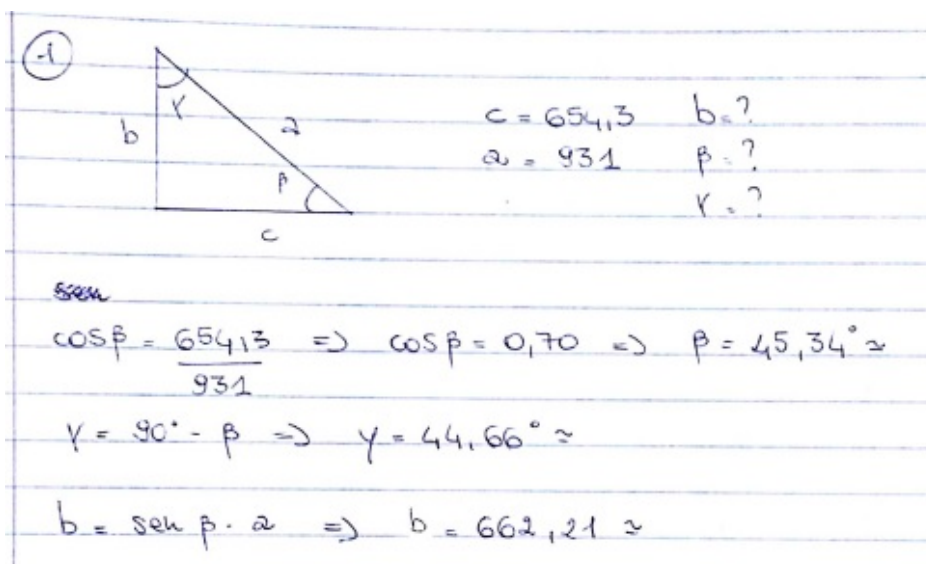 1
γ
b
a
β
c
c = 654,3 b = ?
a = 931 β = ?
γ = ?
cosβ = 654,3 / 931 => cosβ = 0,70 => β = 45,34° ≃
γ = 90° - β => γ = 44,66° ≃
b = sen β . a => b = 662,21 ≃